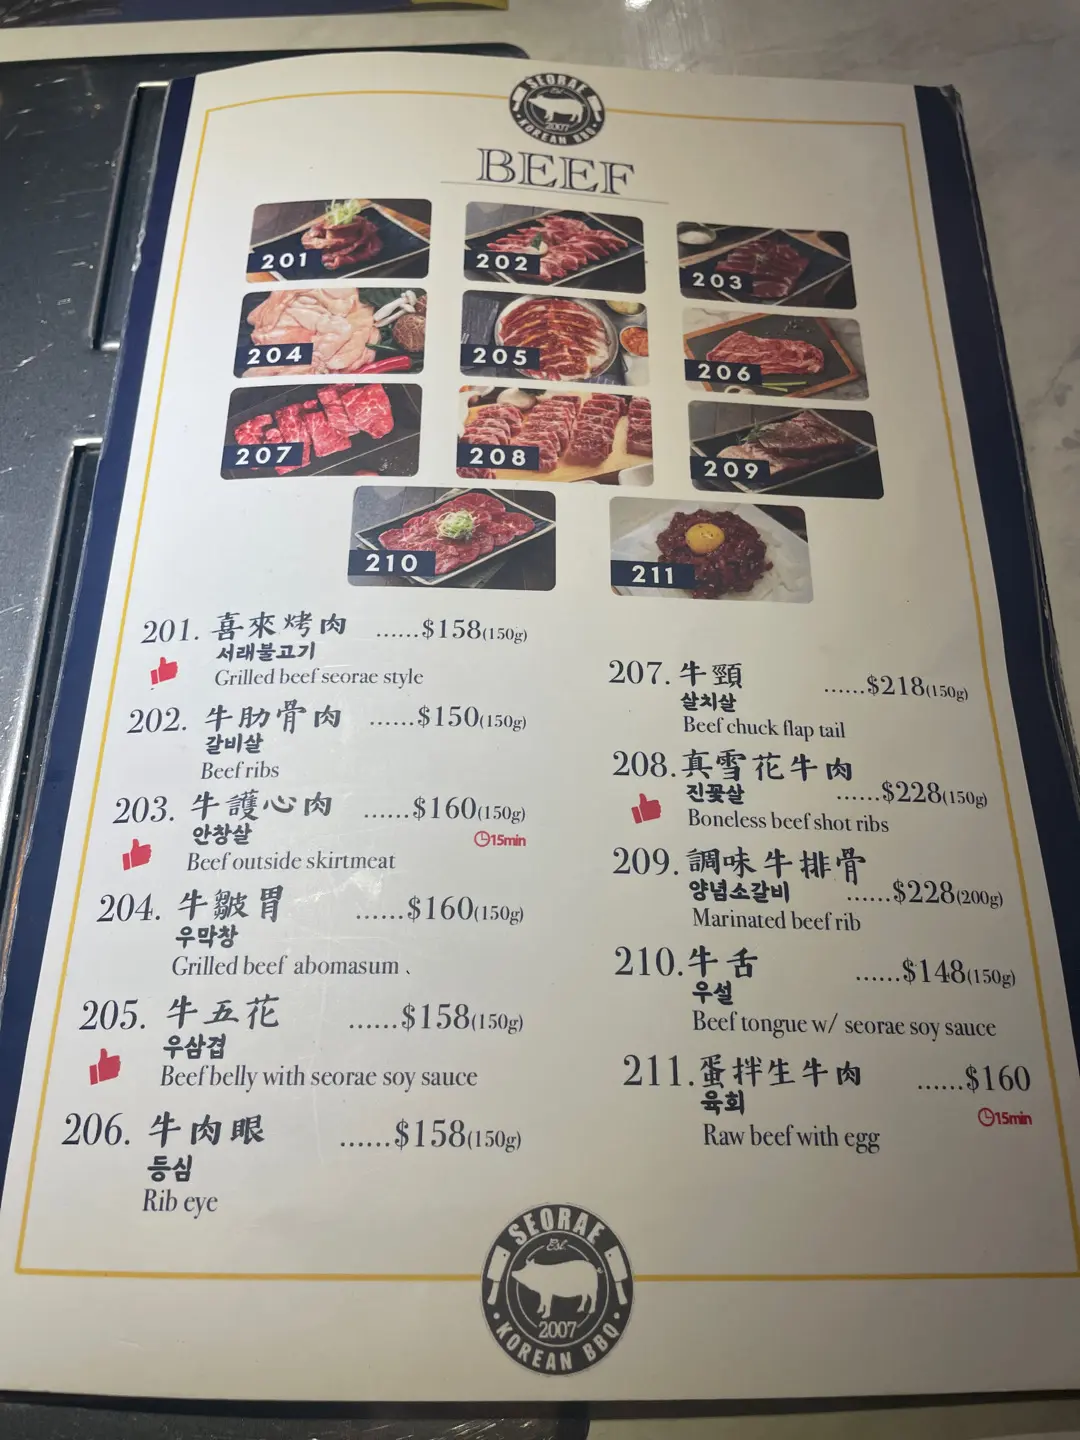 SEORAE
Est.
2007
KOREAN BBQ
BEEF
201
202
203
204
205
206
207
208
209
210
211
201. 喜來烤肉 ......$158(150g)
서래불고기
Grilled beef seorae style
202. 牛肋骨肉 ......$150(150g)
갈비살
Beef ribs
203. 牛護心肉 ......$160(150g)
안창살
15min
Beef outside skirtmeat
204. 牛皺胃 ......$160(150g)
우막창
Grilled beef abomasum 、
205. 牛五花 ......$158(150g)
우삼겹
Beef belly with seorae soy sauce
206. 牛肉眼 ......$158(150g)
등심
Rib eye
207. 牛頸 ......$218(150g)
살치살
Beef chuck flap tail
208. 真雪花牛肉
진꽃살 ......$228(150g)
Boneless beef shot ribs
209. 調味牛排骨
양념소갈비 ......$228(200g)
Marinated beef rib
210. 牛舌 ......$148(150g)
우설
Beef tongue w/ seorae soy sauce
211. 蛋拌生牛肉 ......$160
육회
15min
Raw beef with egg
SEORAE
Est.
2007
KOREAN BBQ